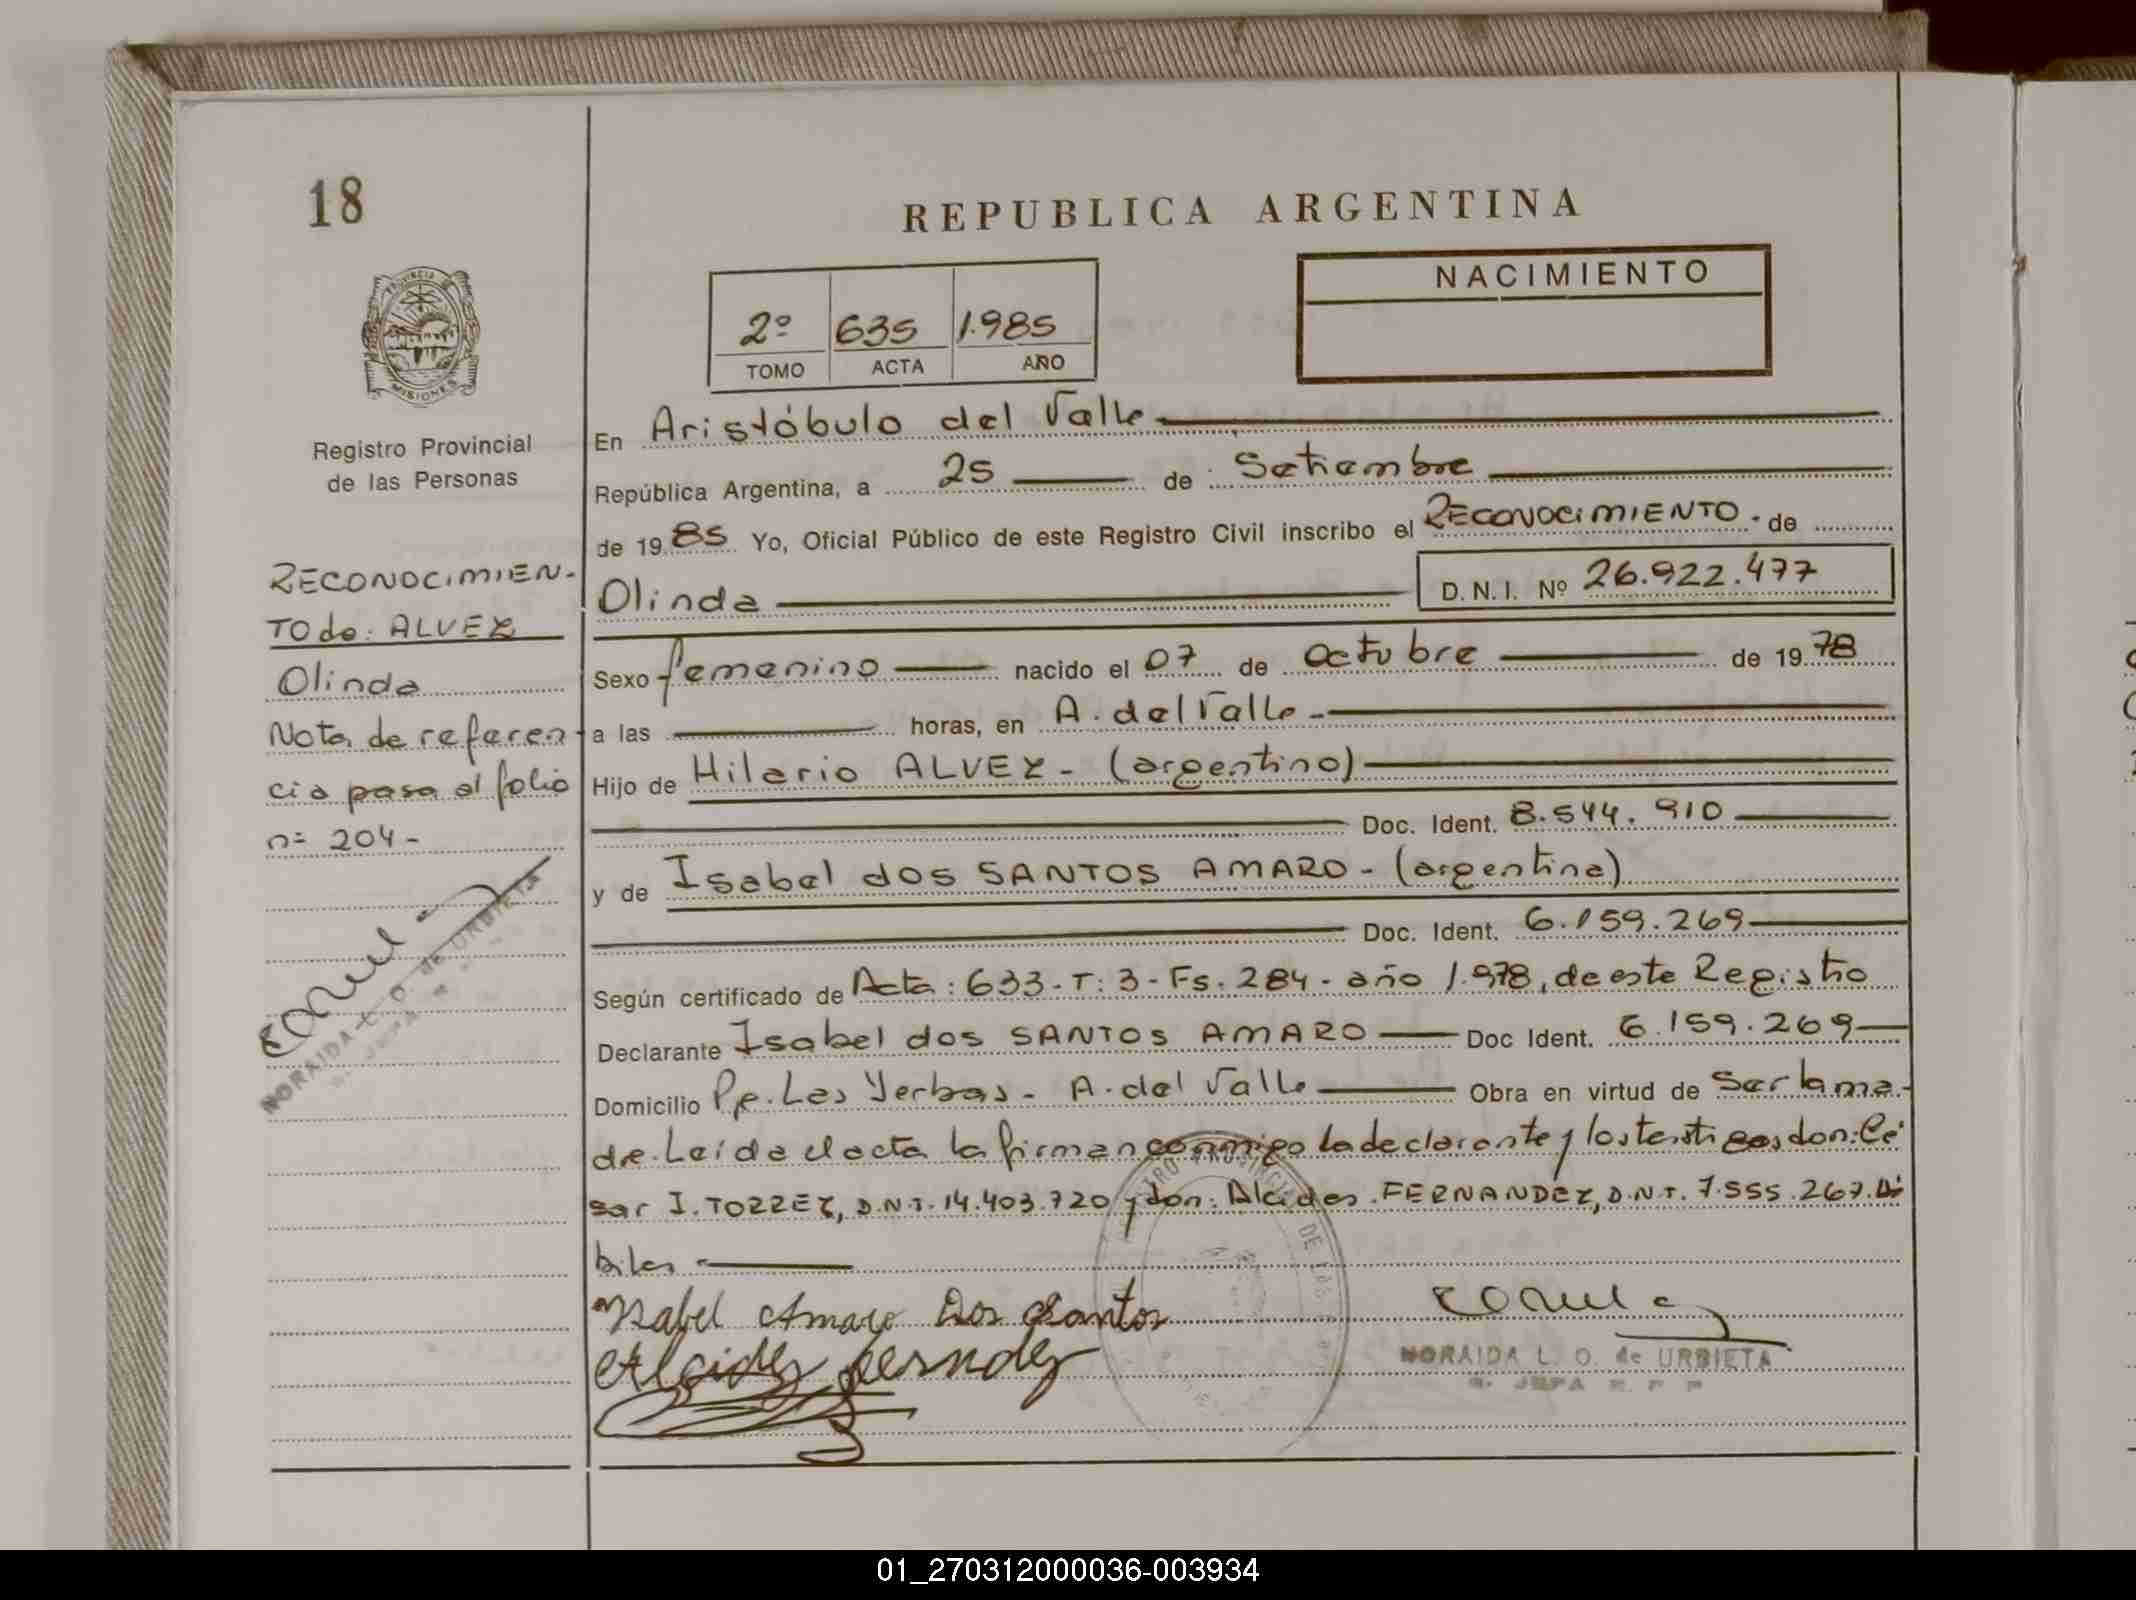 18
REPUBLICA ARGENTINA
PROVINCIA
MISIONES
NACIMIENTO
2º 635 1.985
TOMO ACTA AÑO
Registro Provincial
de las Personas
En Aristóbulo del Valle
República Argentina, a 25 de Setiembre
de 1985 Yo, Oficial Público de este Registro Civil inscribo el RECONOCIMIENTO. de
Olinda D.N.I. Nº 26.922.477
Sexo femenino nacido el 07 de Octubre de 1978
a las horas, en A. del Valle.
Hijo de Hilario ALVEZ - (argentino)
Doc. Ident. 8.544.910
y de Isabel dos SANTOS AMARO - (argentina)
Doc. Ident. 6.159.269
Según certificado de Acta: 633 - T: 3 - Fs. 284 - año 1.978, de este Registro
Declarante Isabel dos SANTOS AMARO Doc Ident. 6.159.269
Domicilio Pje. Las Yerbas - A. del Valle Obra en virtud de Ser la ma-
dre. Leída el acta la firman conmigo la declarante y los testigos don: Cé
sar I. TORREZ, D.N.I. 14.403.720 y don: Alcides FERNANDEZ, D.N.I. 7.555.267. Há
biles
Ysabel Amaro Dos Santos
Alcides Fernandez
NORAIDA L. O. de URBIETA
RECONOCIMIEN-
TO de: ALVEZ
Olinda
Nota de referen
cia pasa al folio
nº 204-
NORAIDA L. O. de URBIETA
01_270312000036-003934